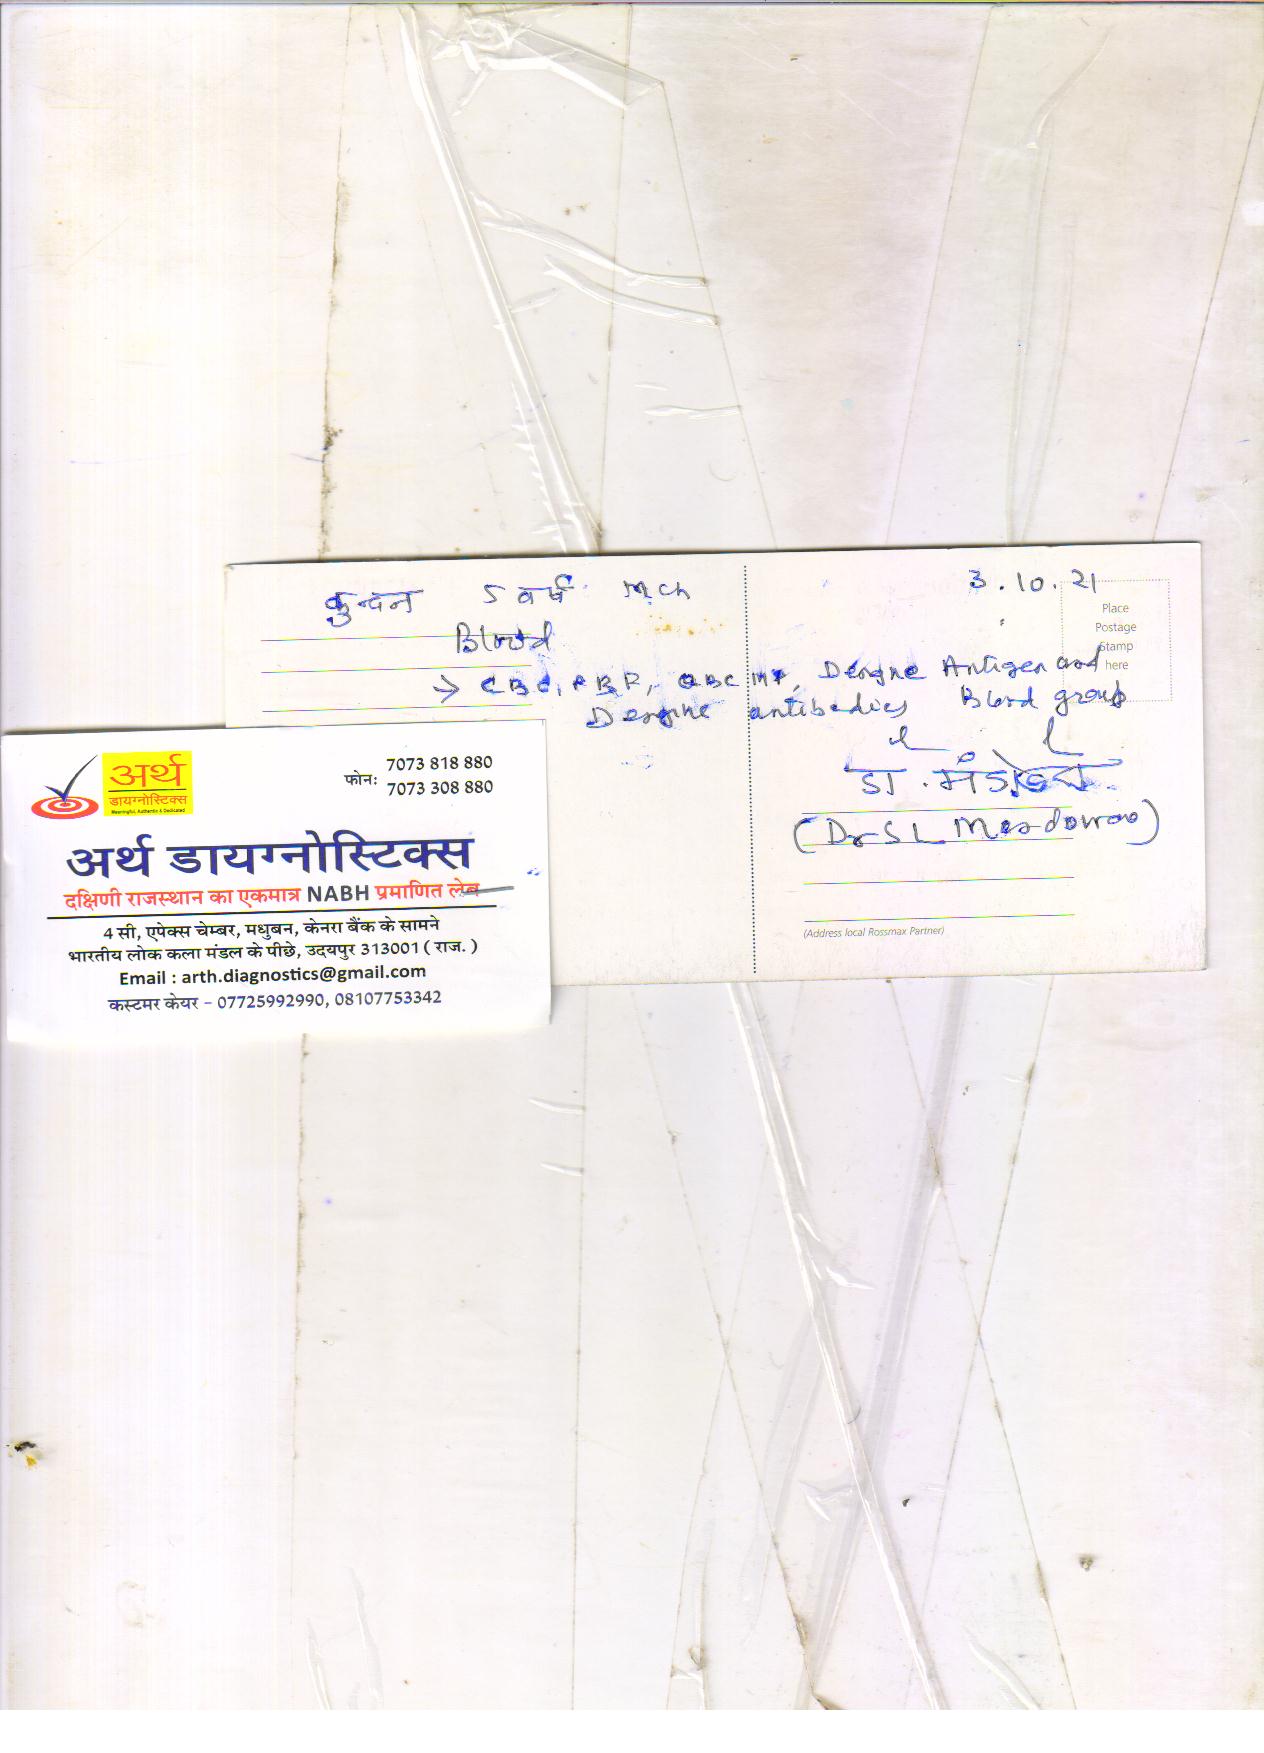 कुन्दन 5 वर्ष Mch
3.10.21
Place
Postage
Stamp
here
Blood
→ CBC, PBF, QBC MP, Dengue Antigen and
Dengue antibodies Blood group
डा.
(Dr S L
(Address local Rossmax Partner)
अर्थ
डायग्नोस्टिक्स
Meaningful, Authentic & Dedicated
फोनः 7073 818 880
7073 308 880
अर्थ डायग्नोस्टिक्स
दक्षिणी राजस्थान का एकमात्र NABH प्रमाणित लेब
4 सी, एपेक्स चेम्बर, मधुबन, केनरा बैंक के सामने
भारतीय लोक कला मंडल के पीछे, उदयपुर 313001 ( राज. )
Email : arth.diagnostics@gmail.com
कस्टमर केयर - 07725992990, 08107753342